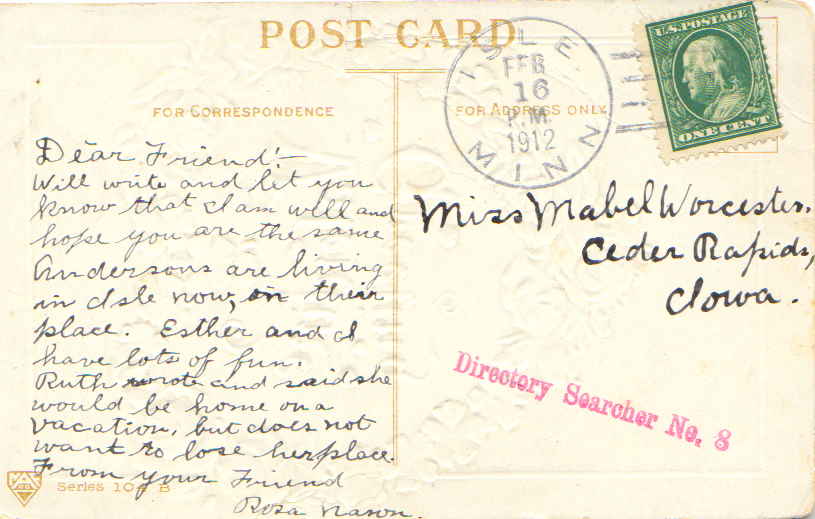 POST CARD
ISLE
FEB
16
P.M.
1912
MINN
U.S. POSTAGE
ONE CENT
FOR CORRESPONDENCE
FOR ADDRESS ONLY
Dear Friend!—
Will write and let you
know that I am well and
hope you are the same
Andersons are living
in Isle now, on their
place. Esther and I
have lots of fun.
Ruth wrote and said she
would be home on a
vacation, but does not
want to lose her place.
From your Friend
Rosa Nason.
Miss Mabel Worcester.
Ceder Rapids,
Iowa.
Directory Searcher No. 8
Series 108 B